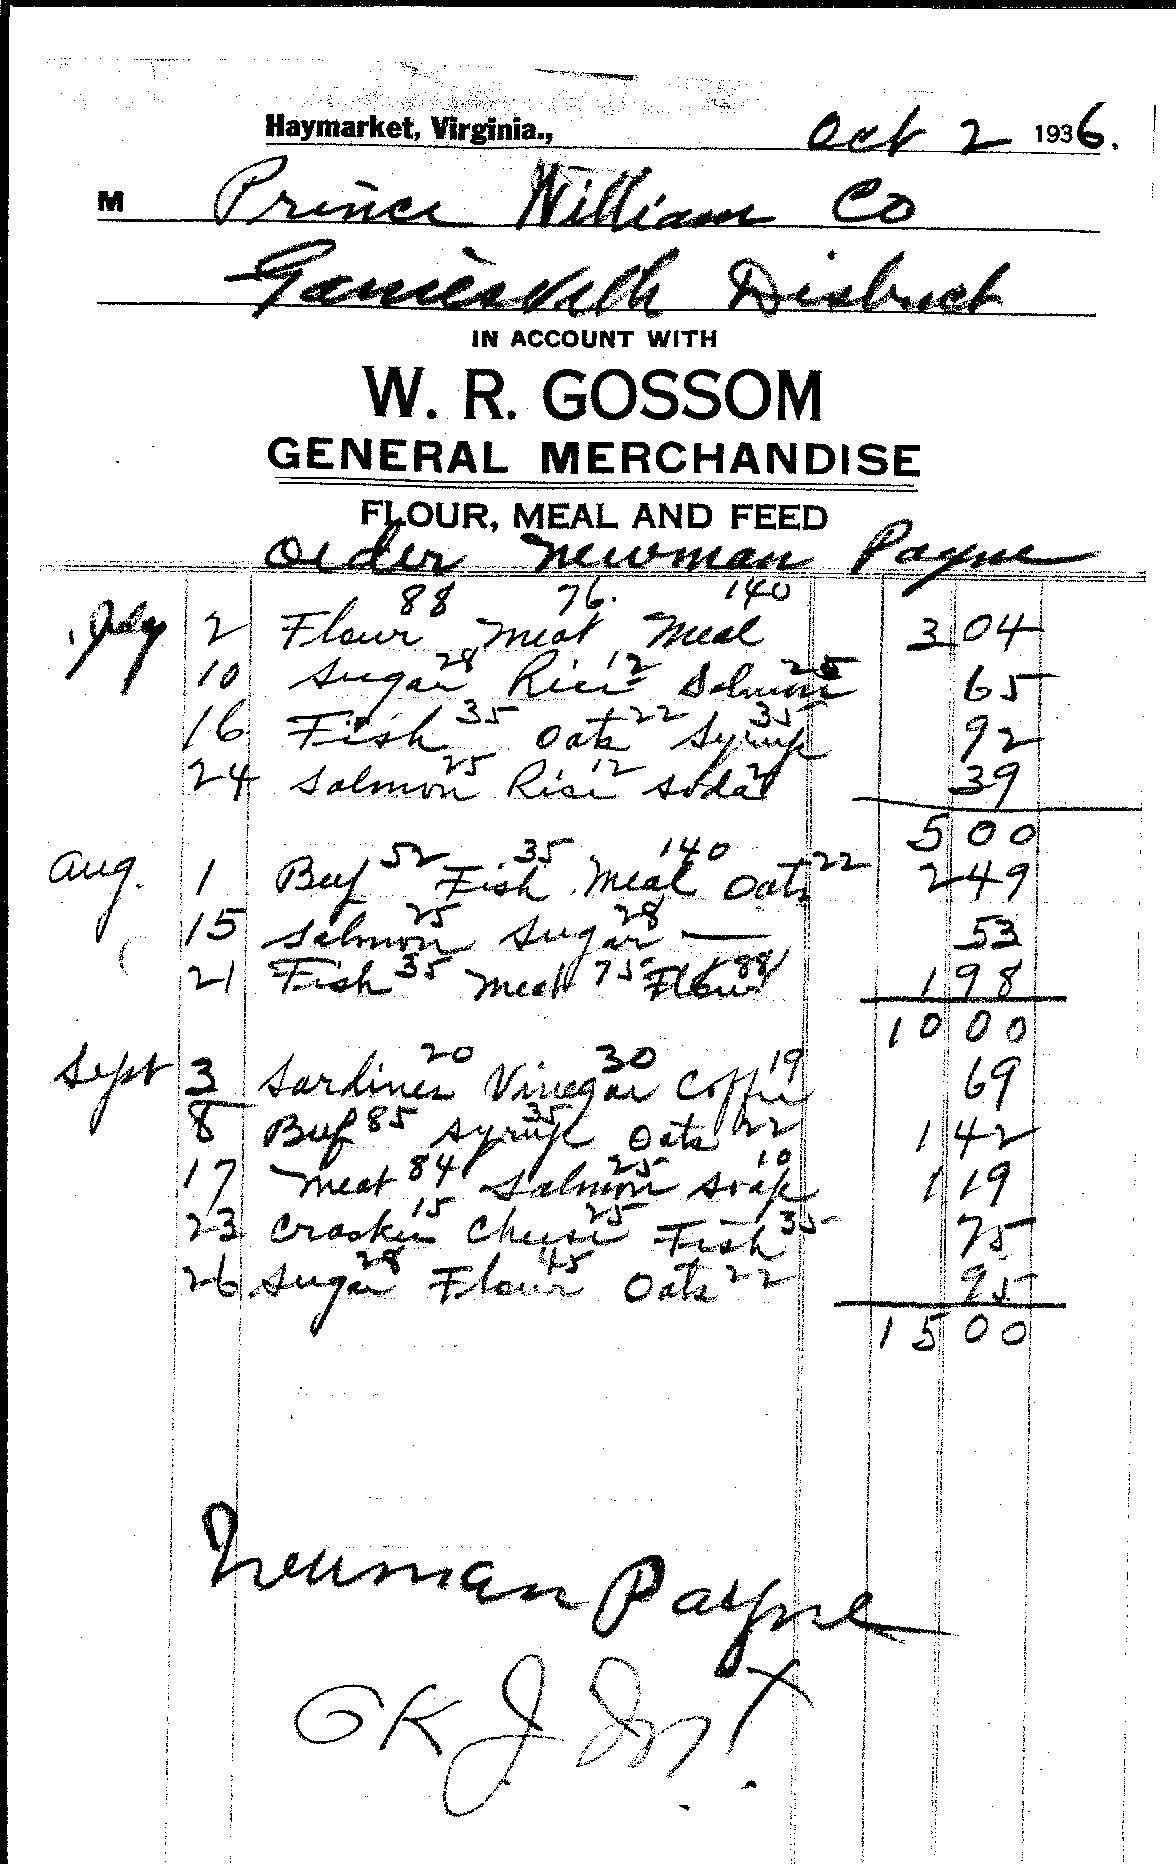 Haymarket, Virginia., Oct 2 1936.
M Prince William Co
Gainesville District
IN ACCOUNT WITH
W. R. GOSSOM
GENERAL MERCHANDISE
FLOUR, MEAL AND FEED
Order Newman Payne
July 2 Flour 88 Meat 76. Meal 140 3 04
10 Sugar 28 Rice 12 Salmon 25 65
16 Fish 35 Oats 22 Syrup 35 92
24 Salmon 25 Rice 12 Soda 2 39
5 00
Aug. 1 Beef 52 Fish 35 Meal 140 Oats 22 2 49
15 Salmon 25 Sugar 28 — 53
21 Fish 35 Meat 75 Flour 88 1 98
10 00
Sept 3 Sardines 20 Vinegar 30 Coffee 19 69
8 Beef 85 Syrup 35 Oats 22 1 42
17 Meat 84 Salmon 25 Soap 10 1 19
23 Crackers 15 Cheese 25 Fish 35 75
26 Sugar 28 Flour 45 Oats 22 95
15 00
Newman Payne
OK